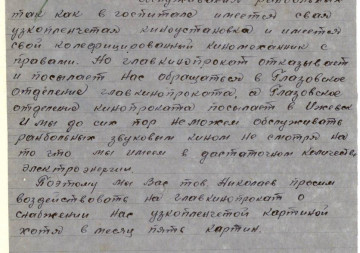 обслуживания ранбольных
так как в госпитале имеется своя
узкопленчатая киноустановка и имеется
свой квалифицированный киномеханик с
правами. Но главкинопрокат отказывает
и посылает нас обращаться в Глазовское
отделение главкинопроката, а Глазовское
отделение кинопроката посылает в Ижевск
И мы до сих пор не можем обслуживать
ранбольных звуковым кином не смотря на
то что мы имеем в достаточном количестве
электроэнергии.
Поэтому мы Вас тов. Николаев просим
воздействовать на главкинопрокат о
снабжении нас узкопленчатой картиной
хотя в месяц пять картин.